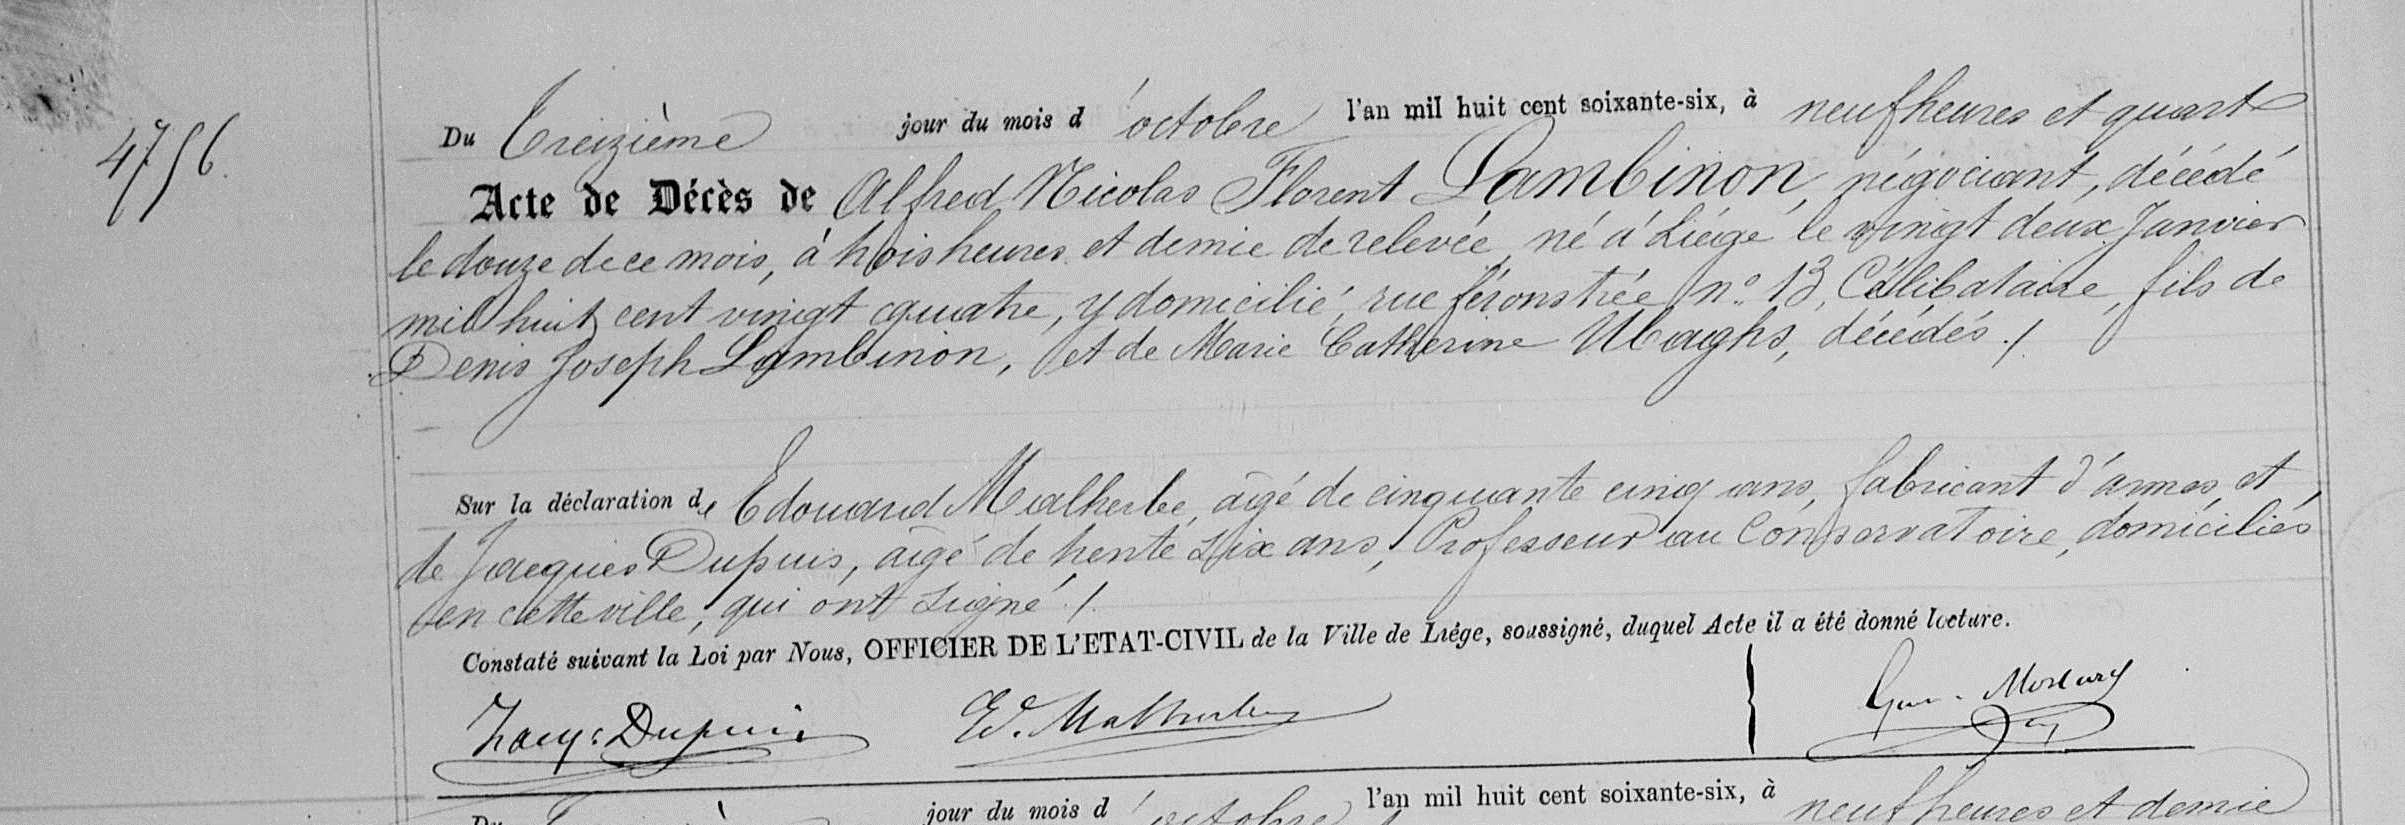 4756.
Du Treizième jour du mois d'octobre l'an mil huit cent soixante-six, à neuf heures et quart
Acte de Décès de Alfred Nicolas Florent Lambinon, négociant, décédé
le douze de ce mois, à trois heures et demie de relevée, né à Liége le vingt deux Janvier
mil huit cent vingt quatre, y domicilié, rue féronstrée n° 13, Célibataire, fils de
Denis Joseph Lambinon, et de Marie Catherine Ubaghs, décédés ./.
Sur la déclaration de Edouard Malherbe, âgé de cinquante cinq ans, fabricant d'armes, et
de Jacques Dupuis, âgé de trente six ans, Professeur au Conservatoire, domiciliés
en cette ville, qui ont signé ./.
Constaté suivant la Loi par Nous, OFFICIER DE L'ETAT-CIVIL de la Ville de Liége, soussigné, duquel Acte il a été donné lecture.
Jacqs Dupuis Ed. Malherbe
Du jour du mois d'octobre l'an mil huit cent soixante-six, à neuf heures et demie